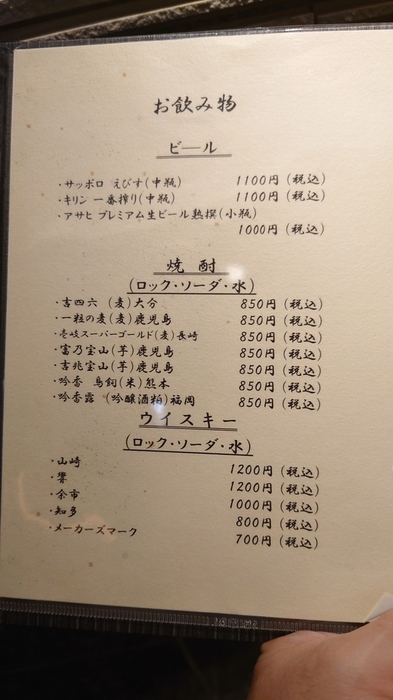 お飲み物
ビール
・サッポロ えびす(中瓶) 1100円(税込)
・キリン 一番搾り(中瓶) 1100円(税込)
・アサヒ プレミアム生ビール熟撰(小瓶)
1000円(税込)
焼酎
(ロック・ソーダ・水)
・吉四六 (麦)大分 850円(税込)
・一粒の麦(麦)鹿児島 850円(税込)
・壱岐スーパーゴールド(麦)長崎 850円(税込)
・富乃宝山(芋)鹿児島 850円(税込)
・吉兆宝山(芋)鹿児島 850円(税込)
・吟香 鳥飼(米)熊本 850円(税込)
・吟香露 (吟醸酒粕)福岡 850円(税込)
ウイスキー
(ロック・ソーダ・水)
・山崎 1200円(税込)
・響 1200円(税込)
・余市 1000円(税込)
・知多 800円(税込)
・メーカーズマーク 700円(税込)